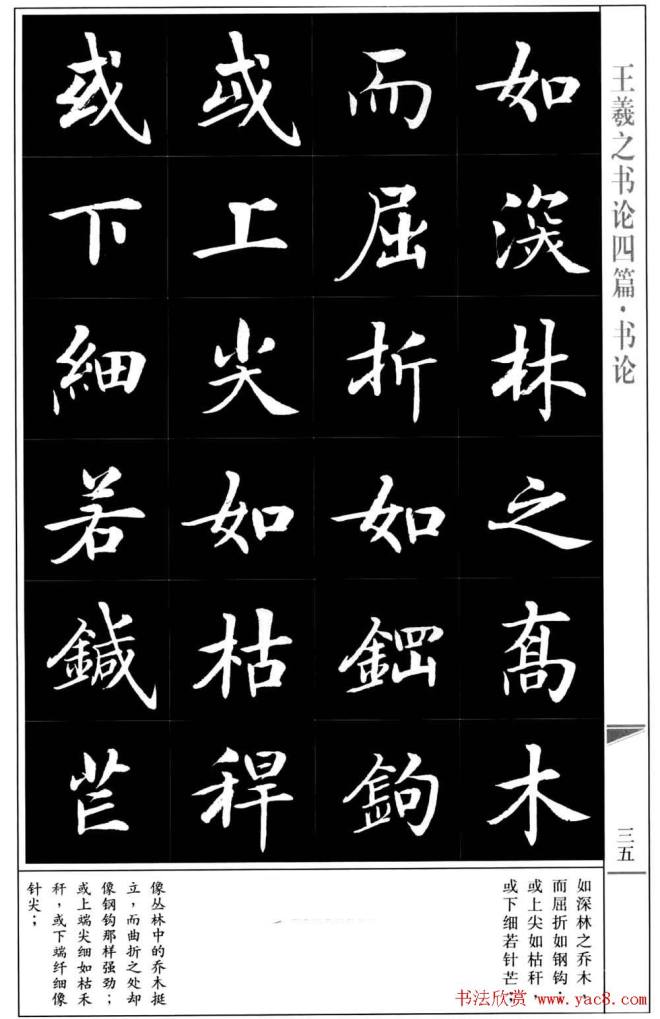 王羲之书论四篇·书论
如深林之高木
而屈折如鋼鉤
或上尖如枯稈
或下細若鍼芒
三五
如深林之乔木，
而屈折如钢钩；
或上尖如枯秆，
或下细若针芒；
像丛林中的乔木挺
立，而曲折之处却
像钢钩那样强劲；
或上端尖细如枯禾
秆，或下端纤细像
针尖；
书法欣赏 www.yac8.com